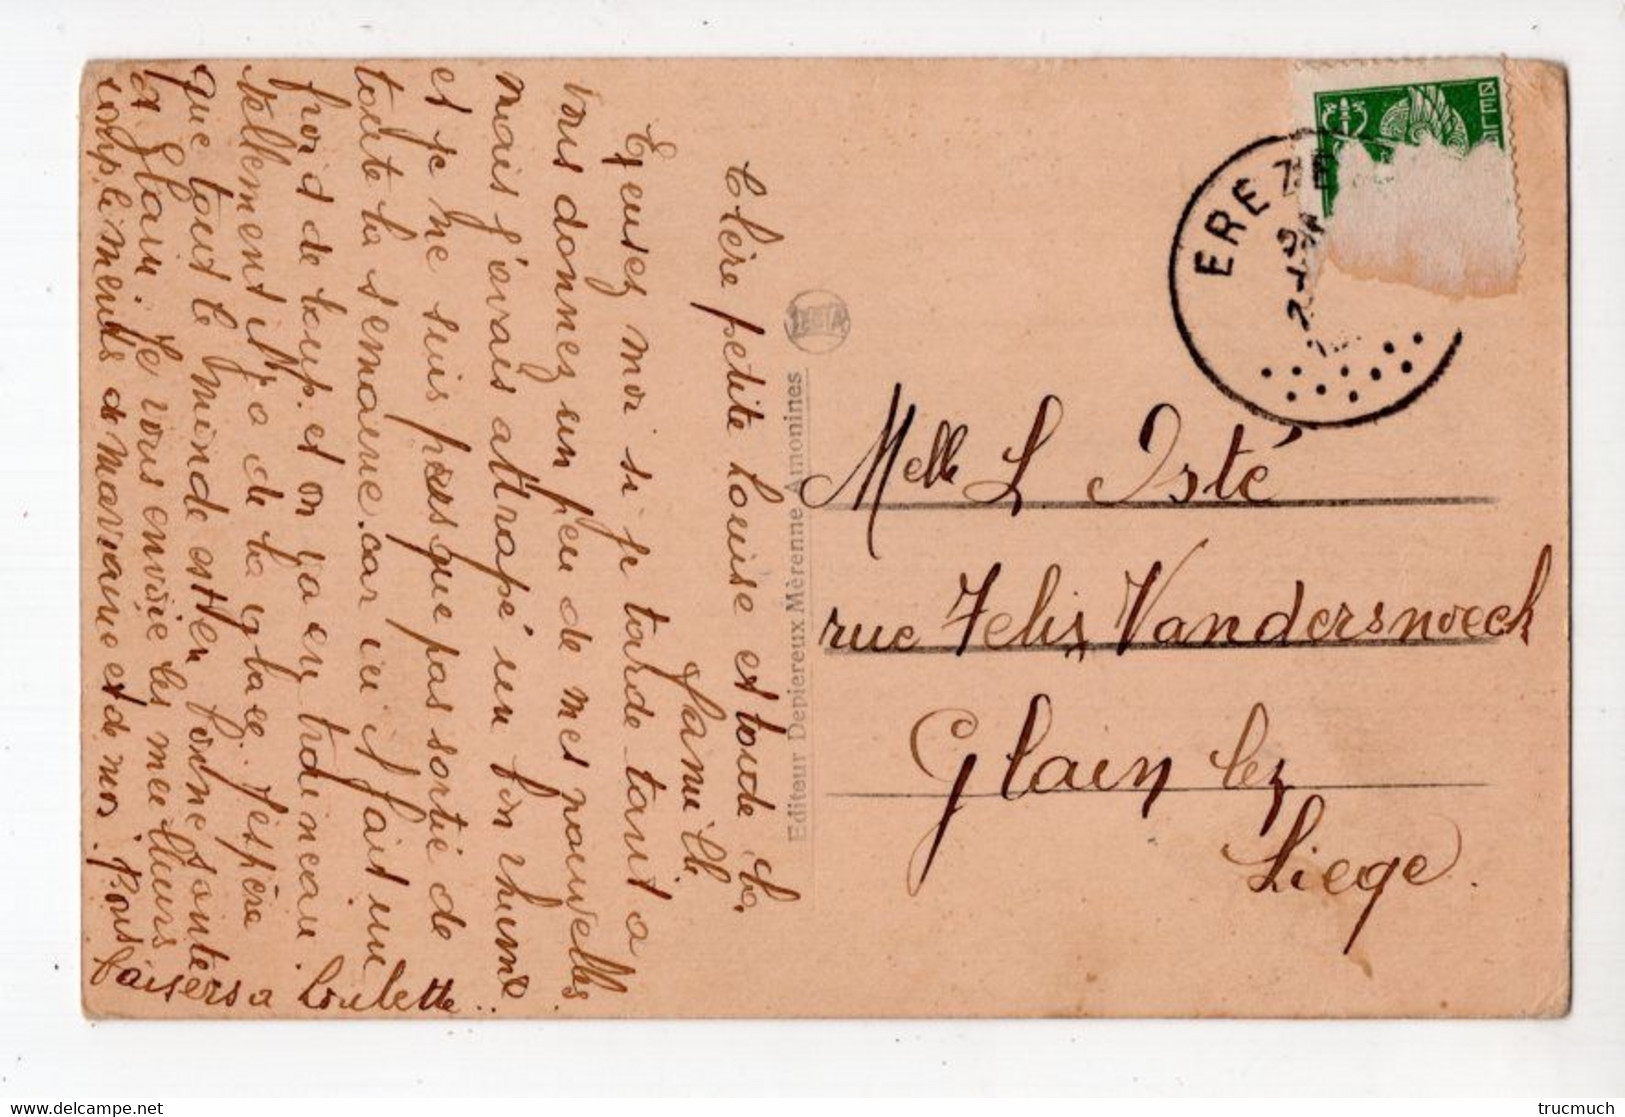 Chère petite Louise et toute la
famille
Excusez moi si je tarde tant a
vous donnez un peu de mes nouvelles
mais j'avais attrapé un bon rhume
et je me suis presque pas sortie de
toute la semaine. car ici il fait un
froid de loup. et on va en traineau
tellement il y a de la glace. j'espère
que tout le monde est en bonne santée
la Glain. Je vous envoie les meilleurs
compliments de marraine et de moi. Bons
baisers a Loulette
Editeur Depiereux Mèrenne Amonines
BELG
EREZEE
Melle L Isté
rue Felix Vandersnoeck
Glain lez
Liege.
delcampe.net
trucmuch